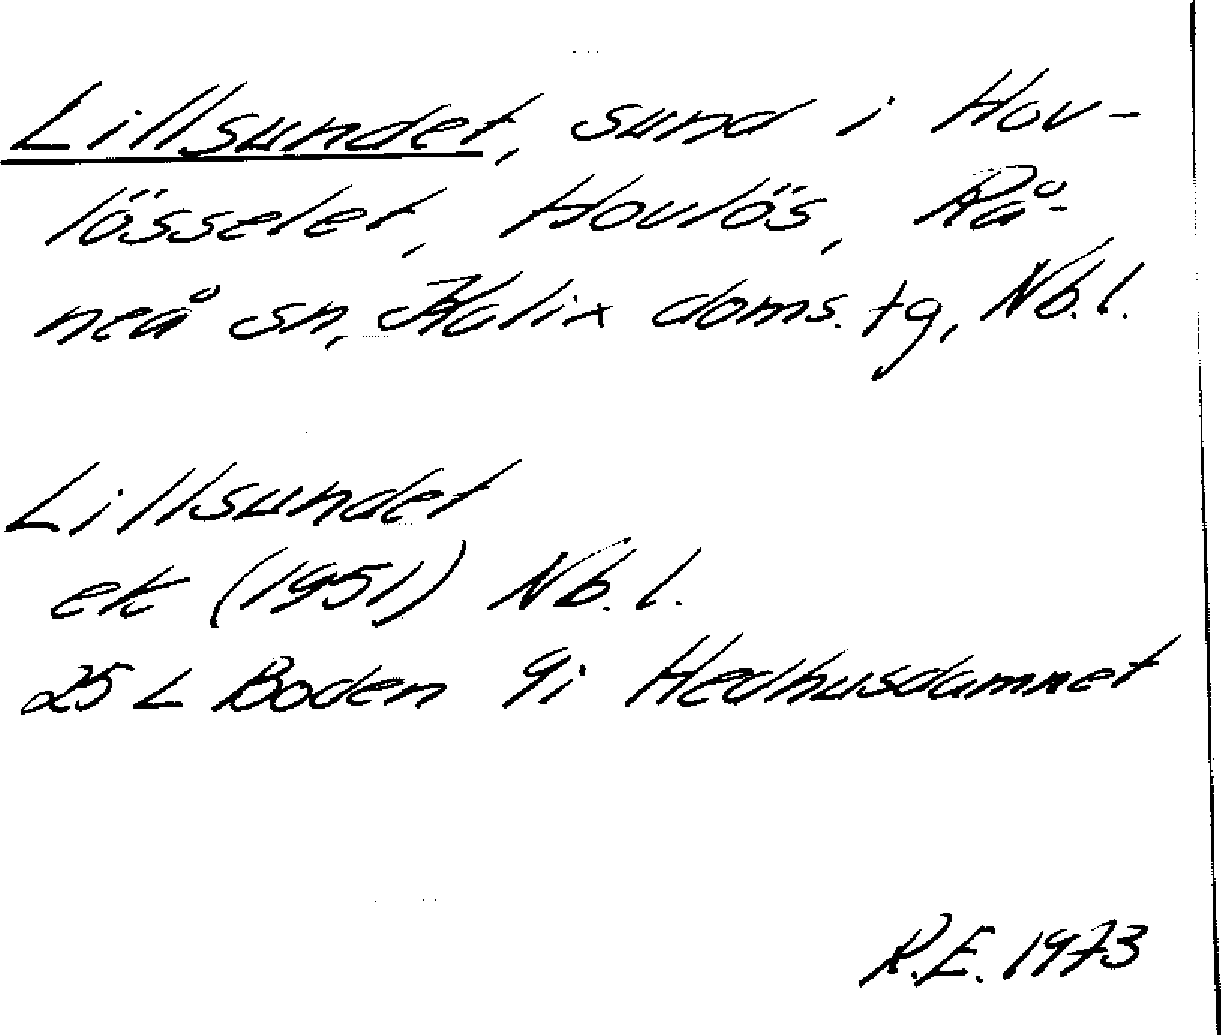 Lillsundet, sund i Hov-
lösselet, Hovlös, Rå-
neå sn, Kalix doms. tg, Nb. l.
Lillsundet
ek (1951) Nb. l.
25 L Boden 9i Hedhusdammet
R.E. 1973